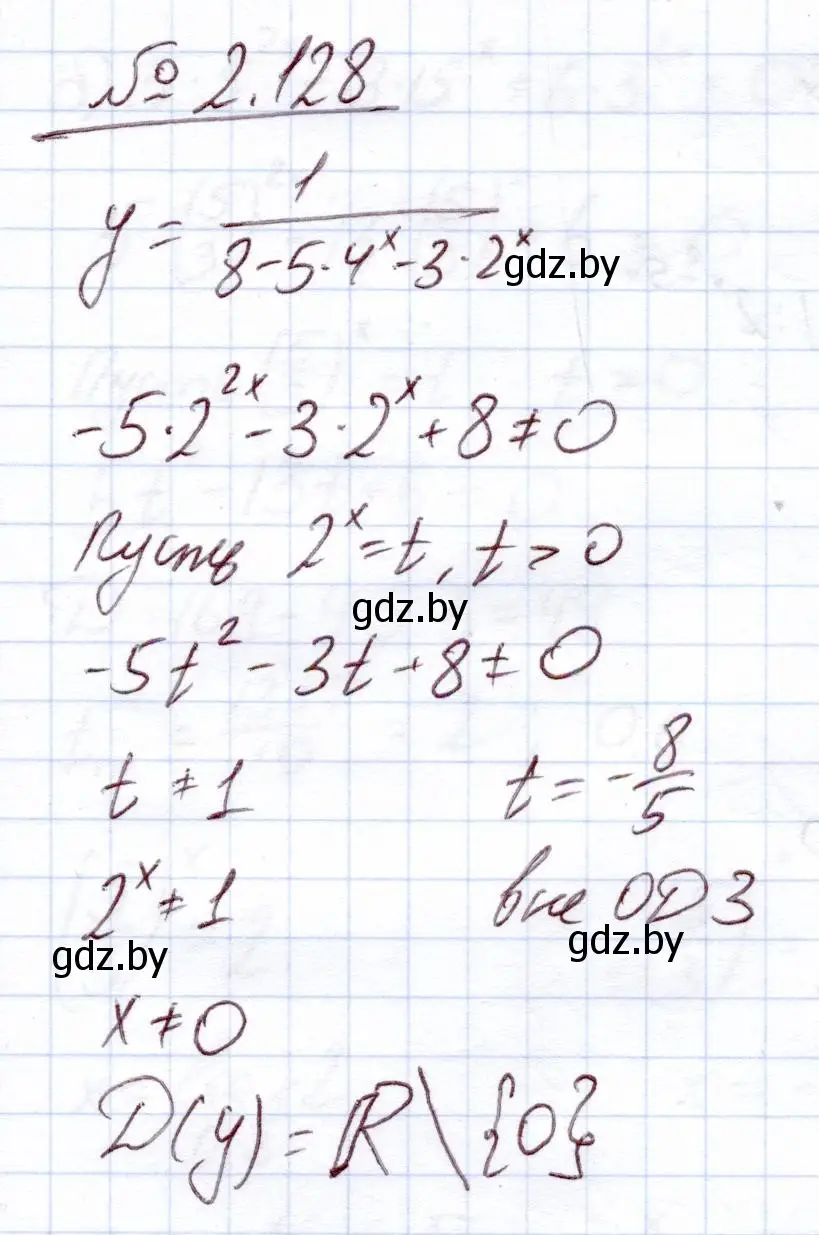 № 2.128
y = 1 / (8 - 5·4^x - 3·2^x)
gdz.by
-5·2^{2x} - 3·2^x + 8 ≠ 0
Пусть 2^x = t, t > 0
gdz.by
-5t² - 3t + 8 ≠ 0
t ≠ 1 t = -8/5
2^x ≠ 1 вне ОДЗ
gdz.by gdz.by
x ≠ 0
D(y) = ℝ \ {0}